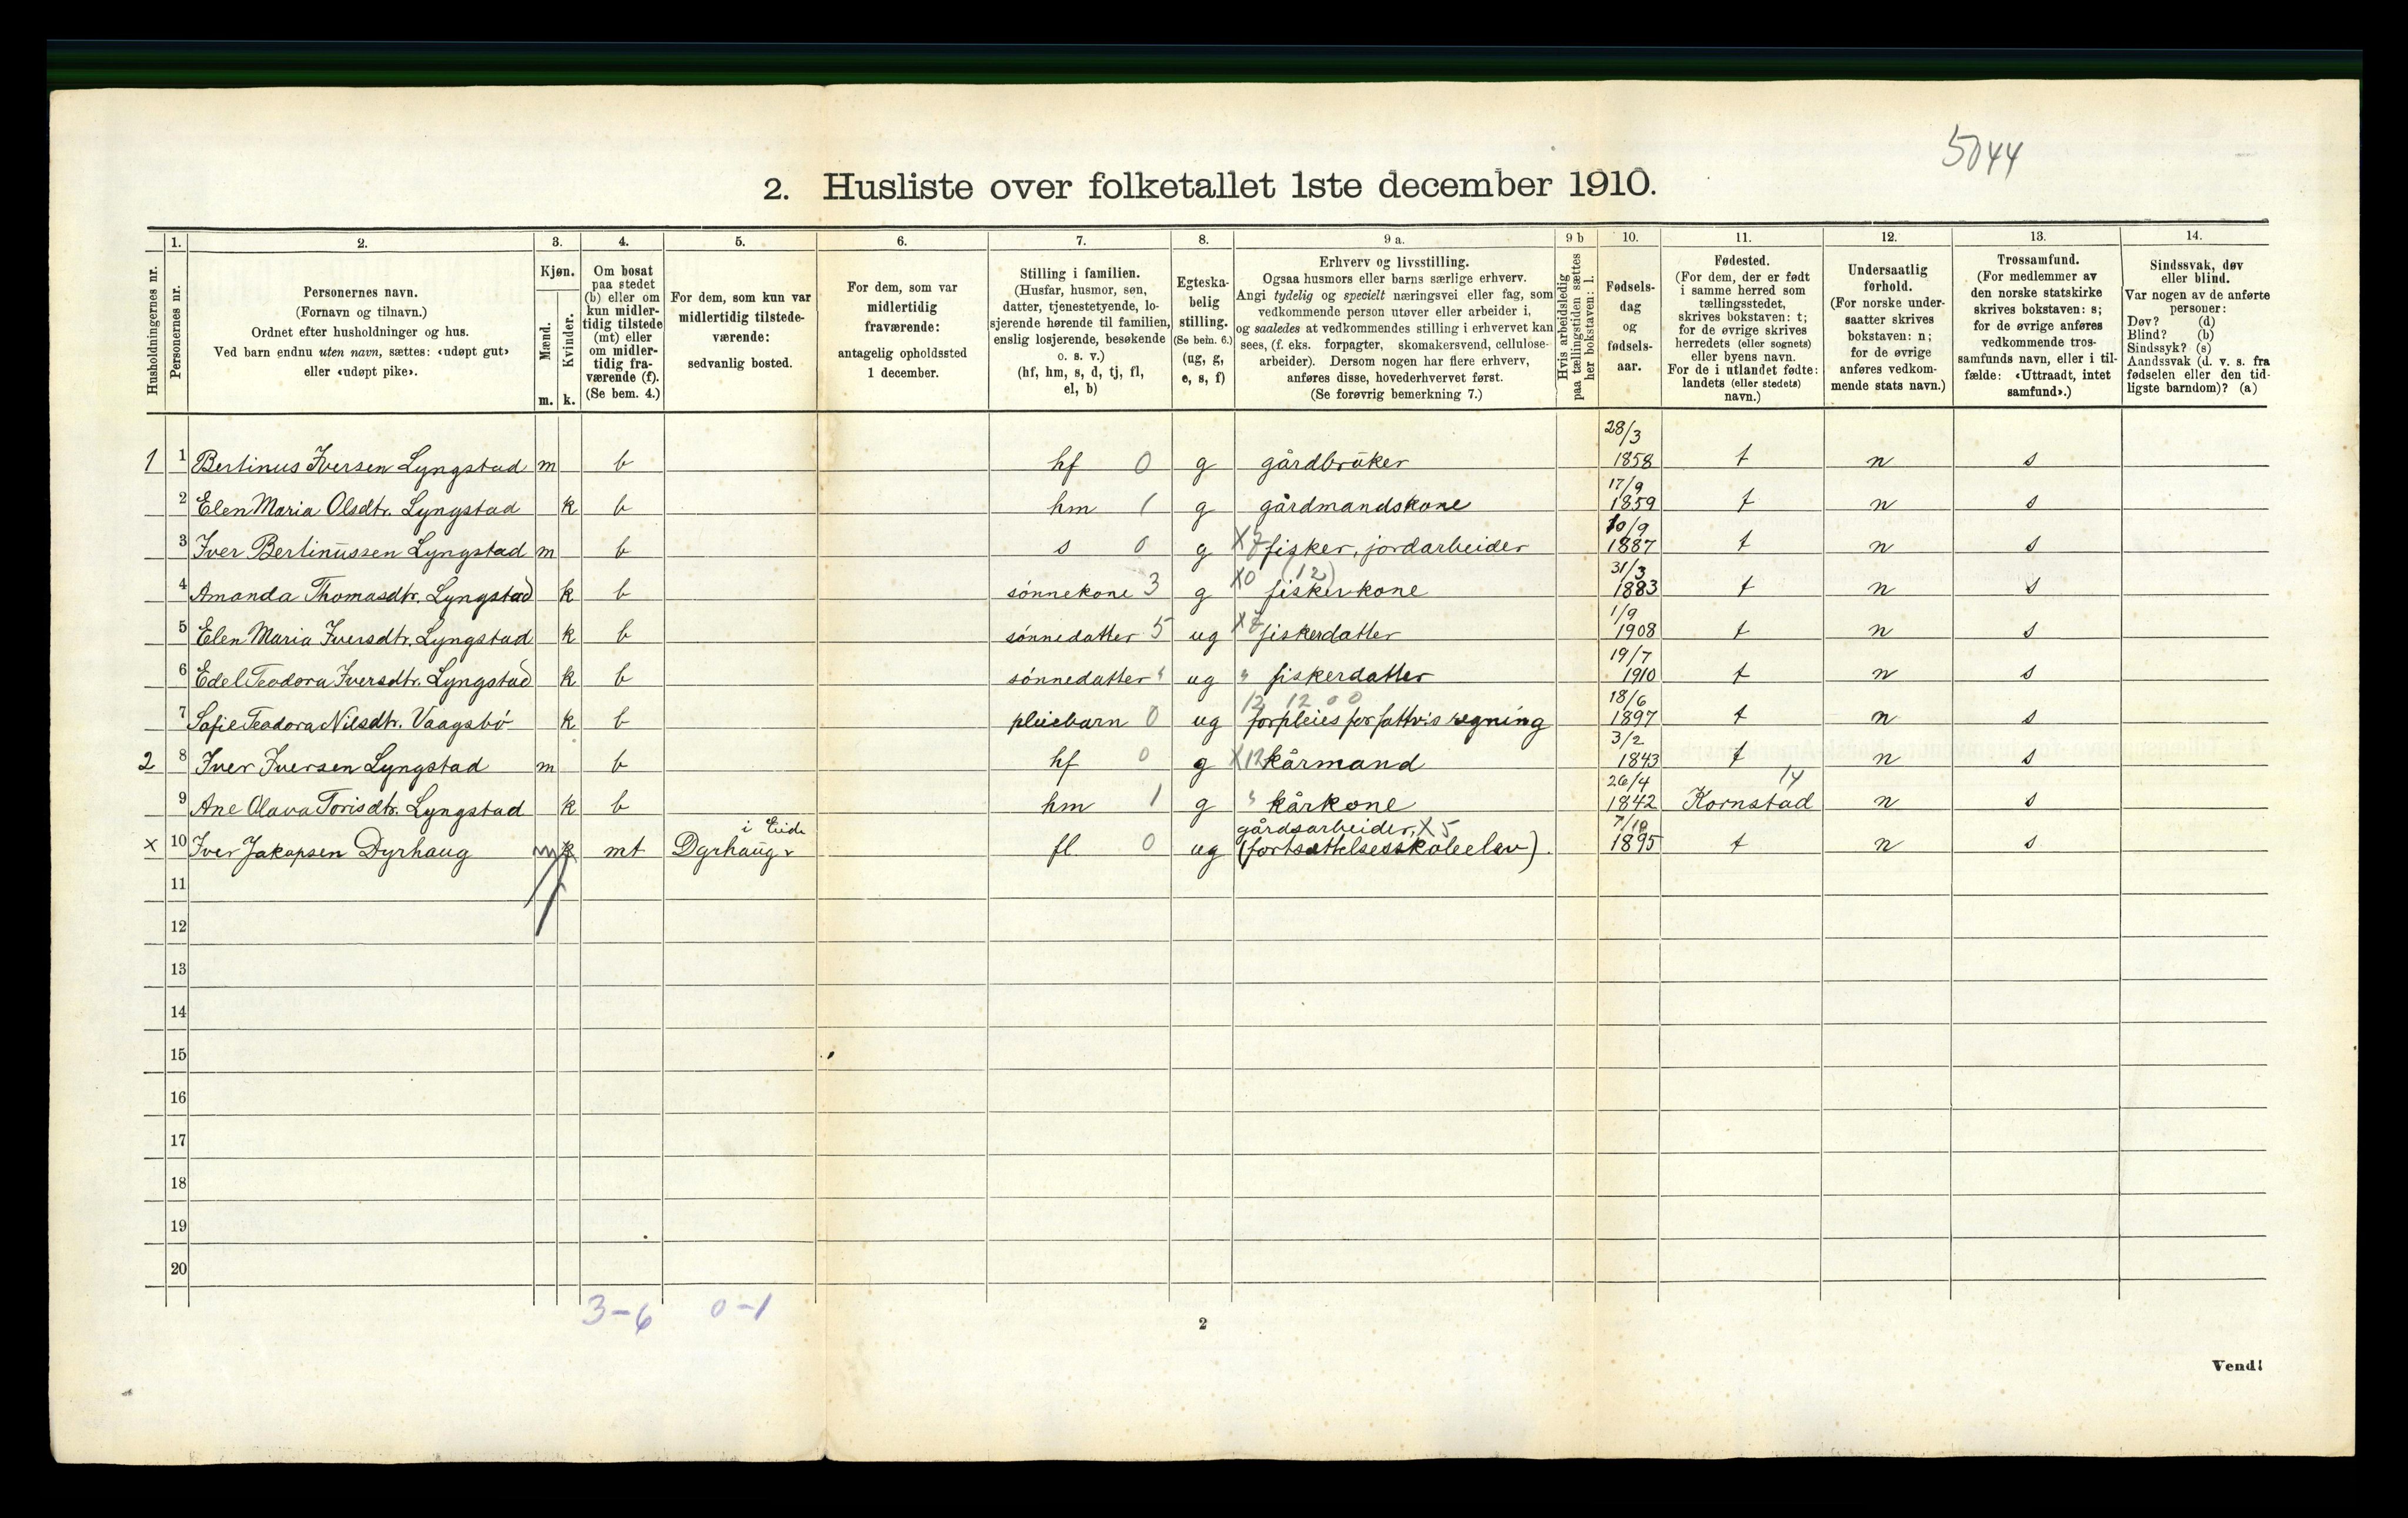 5044
2. Husliste over folketallet 1ste december 1910.
Husholdningernes nr.
1.
Personernes nr.
2.
Personernes navn.
(Fornavn og tilnavn.)
Ordnet efter husholdninger og hus.
Ved barn endnu uten navn, sættes: «udøpt gut»
eller «udøpt pike».
3.
Kjøn.
Mænd.
Kvinder.
m. k.
4.
Om bosat
paa stedet
(b) eller om
kun midler-
tidig tilstede
(mt) eller
om midler-
tidig fra-
værende (f).
(Se bem. 4.)
5.
For dem, som kun var
midlertidig tilstede-
værende:
sedvanlig bosted.
6.
For dem, som var
midlertidig
fraværende:
antagelig opholdssted
1 december.
7.
Stilling i familien.
(Husfar, husmor, søn,
datter, tjenestetyende, lo-
sjerende hørende til familien,
enslig losjerende, besøkende
o. s. v.)
(hf, hm, s, d, tj, fl,
el, b)
8.
Egteska-
belig
stilling.
(Se bem. 6.)
(ug, g,
e, s, f)
9 a.
Erhverv og livsstilling.
Ogsaa husmors eller barns særlige erhverv.
Angi tydelig og specielt næringsvei eller fag, som
vedkommende person utøver eller arbeider i,
og saaledes at vedkommendes stilling i erhvervet kan
sees, (f. eks. forpagter, skomakersvend, cellulose-
arbeider). Dersom nogen har flere erhverv,
anføres disse, hovederhvervet først.
(Se forøvrig bemerkning 7.)
9 b
Hvis arbeidsledig
paa tællingstiden sættes
her bokstaven: l.
10.
Fødsels-
dag
og
fødsels-
aar.
11.
Fødested.
(For dem, der er født
i samme herred som
tællingsstedet,
skrives bokstaven: t;
for de øvrige skrives
herredets (eller sognets)
eller byens navn.
For de i utlandet fødte:
landets (eller stedets)
navn.)
12.
Undersaatlig
forhold.
(For norske under-
saatter skrives
bokstaven: n;
for de øvrige
anføres vedkom-
mende stats navn.)
13.
Trossamfund.
(For medlemmer av
den norske statskirke
skrives bokstaven: s;
for de øvrige anføres
vedkommende tros-
samfunds navn, eller i til-
fælde: «Uttraadt, intet
samfund».)
14.
Sindssvak, døv
eller blind.
Var nogen av de anførte
personer:
Døv? (d)
Blind? (b)
Sindssyk? (s)
Aandssvak (d. v. s. fra
fødselen eller den tid-
ligste barndom)? (a)
1 1 Bertinus Iversen Lyngstad m b hf 0 g gårdbrüker 28/3 1858 t n s
2 Elen Maria Olsdtr. Lyngstad k b hm 1 g gårdmandskone 17/9 1859 t n s
3 Iver Bertinüssen Lyngstad m b s 0 g X7 fisker, jordarbeider 10/9 1887 t n s
4 Amanda Thomasdtr. Lyngstad k b sønnekone 3 g X0 (12) fiskerkone 31/3 1883 t n s
5 Elen Maria Iversdtr. Lyngstad k b sønnedatter 5 ug X7 fiskerdatter 1/9 1908 t n s
6 Edel Teodora Iversdtr. Lyngstad k b sønnedatter " ug " fiskerdatter 19/7 1910 t n s
7 Sofie Teodora Nilsdtr. Vaagsbø k b pleiebarn 0 ug 12 12 0 0 forpleies for fattv:s regning 18/6 1897 t n s
2 8 Iver Iversen Lyngstad m b hf 0 g X12 kårmand 3/2 1843 t n s
9 Ane Olava Torisdtr. Lyngstad k b hm 1 g " kårkone 26/4 1842 Kornstad 14 n s
x 10 Iver Jakopsen Dyrhaug m k mt Dyrhaüg i Eide fl 0 ug gårdsarbeider, X5 (fortsættelsesskoleelev). 7/10 1895 t n s
11
12
13
14
15
16
17
18
19
20
3-6 0-1
2
Vend!